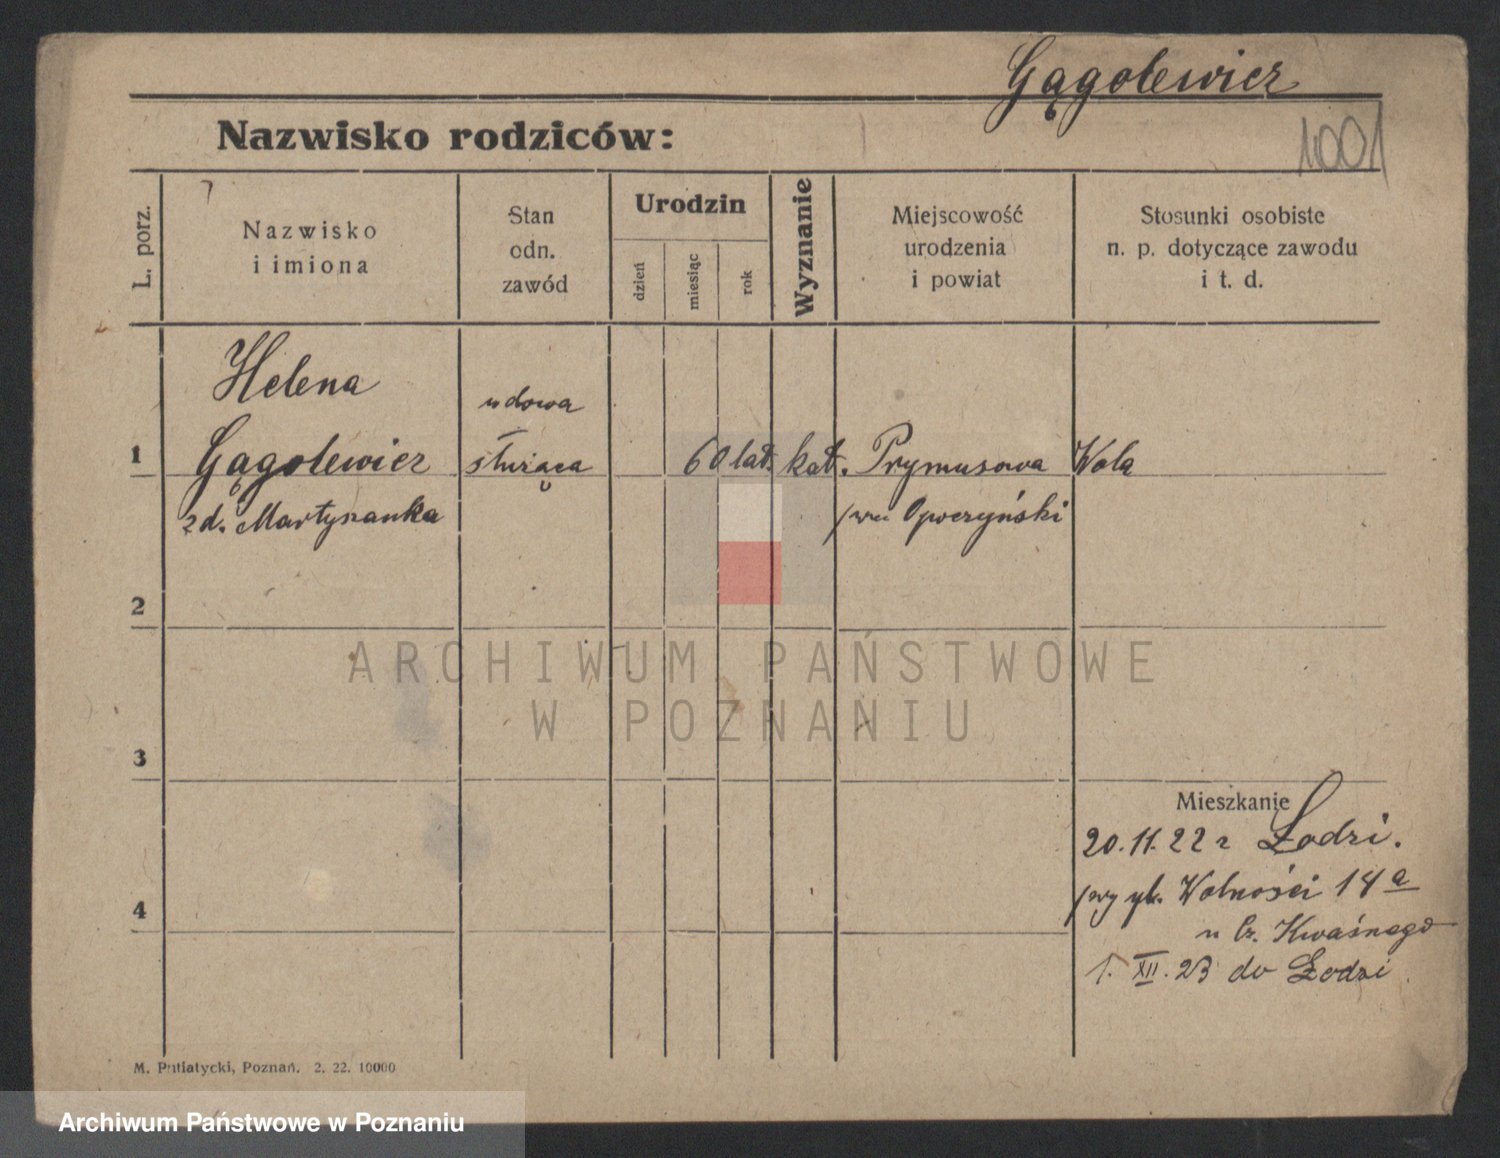 Gągolewicz
1001
Nazwisko rodziców:
L. porz.
Nazwisko
i imiona
Stan
odn.
zawód
Urodzin
dzień
miesiąc
rok
Wyznanie
Miejscowość
urodzenia
i powiat
Stosunki osobiste
n. p. dotyczące zawodu
i t. d.
Helena
wdowa
1 Gągolewicz służąca 60 lat. kat. Prymusowa Wola
zd. Martynanka Opoczyński
2
ARCHIWUM PAŃSTWOWE
W POZNANIU
3
Mieszkanie
20.11.22 z Łodzi.
przy ul. Wolności 14a
u Cz. Kwaśnego
4
1. XII. 23 do Łodzi
M. Putiatycki, Poznań. 2. 22. 10000
Archiwum Państwowe w Poznaniu